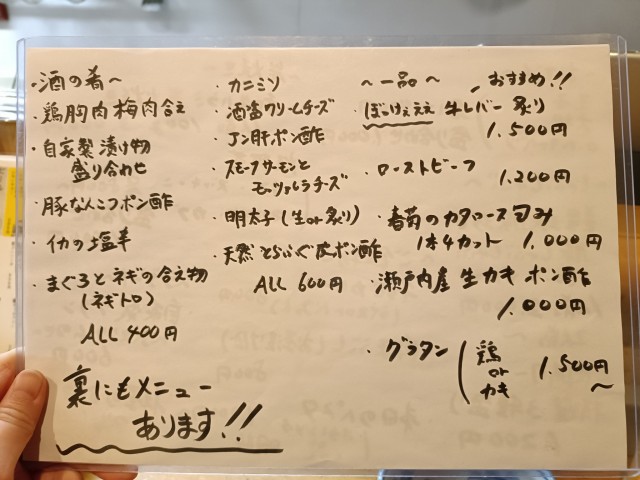 ・酒の肴〜
・鶏胸肉梅肉合え
・自家製漬け物
盛り合わせ
・豚なんこつポン酢
・イカの塩辛
・まぐろとネギの合え物
(ネギトロ)
ALL 400円
裏にもメニュー
あります!!
・カニミソ
・酒盗クリームチーズ
・アン肝ポン酢
・スモークサーモンと
モッツァレラチーズ
・明太子(生or炙り)
・天然とらふぐ皮ポン酢
ALL 600円
〜一品〜
おすすめ!!
ぼっけぇええ 牛レバー 炙り
1.500円
・ローストビーフ
1.200円
・春菊のカタロース包み
1本4カット 1.000円
・瀬戸内産 生カキ ポン酢
1.000円
・グラタン(鶏
or
カキ
1.500円
〜